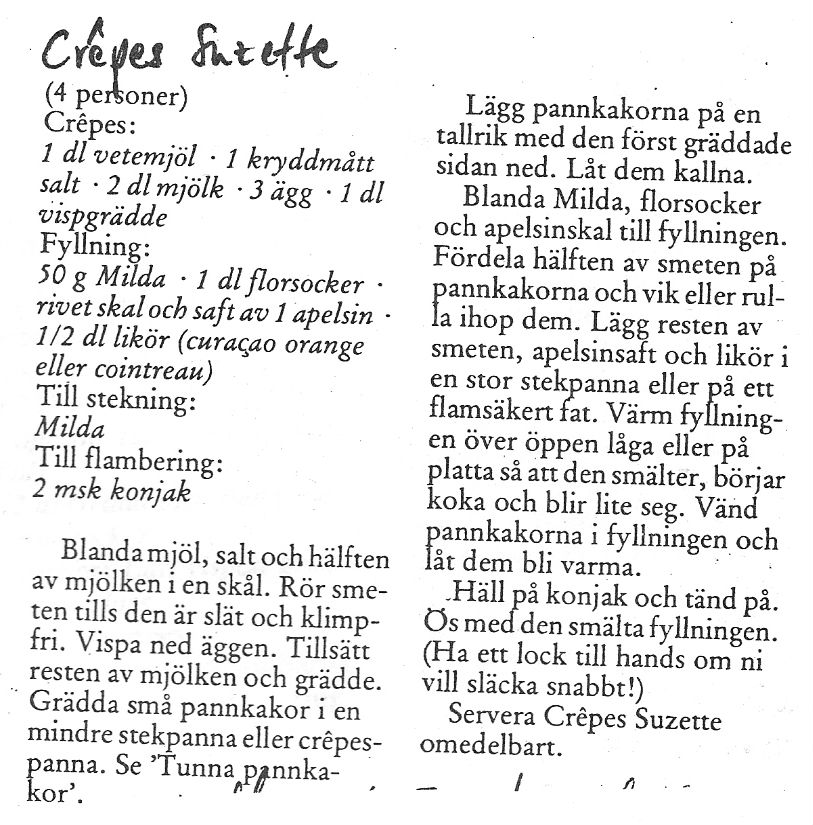 Crêpes Suzette
(4 personer)
Crêpes:
1 dl vetemjöl · 1 kryddmått
salt · 2 dl mjölk · 3 ägg · 1 dl
vispgrädde
Fyllning:
50 g Milda · 1 dl florsocker ·
rivet skal och saft av 1 apelsin ·
1/2 dl likör (curaçao orange
eller cointreau)
Till stekning:
Milda
Till flambering:
2 msk konjak
Blanda mjöl, salt och hälften
av mjölken i en skål. Rör sme-
ten tills den är slät och klimp-
fri. Vispa ned äggen. Tillsätt
resten av mjölken och grädde.
Grädda små pannkakor i en
mindre stekpanna eller crêpes-
panna. Se 'Tunna pannka-
kor'.
Lägg pannkakorna på en
tallrik med den först gräddade
sidan ned. Låt dem kallna.
Blanda Milda, florsocker
och apelsinskal till fyllningen.
Fördela hälften av smeten på
pannkakorna och vik eller rul-
la ihop dem. Lägg resten av
smeten, apelsinsaft och likör i
en stor stekpanna eller på ett
flamsäkert fat. Värm fyllning-
en över öppen låga eller på
platta så att den smälter, börjar
koka och blir lite seg. Vänd
pannkakorna i fyllningen och
låt dem bli varma.
Häll på konjak och tänd på.
Ös med den smälta fyllningen.
(Ha ett lock till hands om ni
vill släcka snabbt!)
Servera Crêpes Suzette
omedelbart.